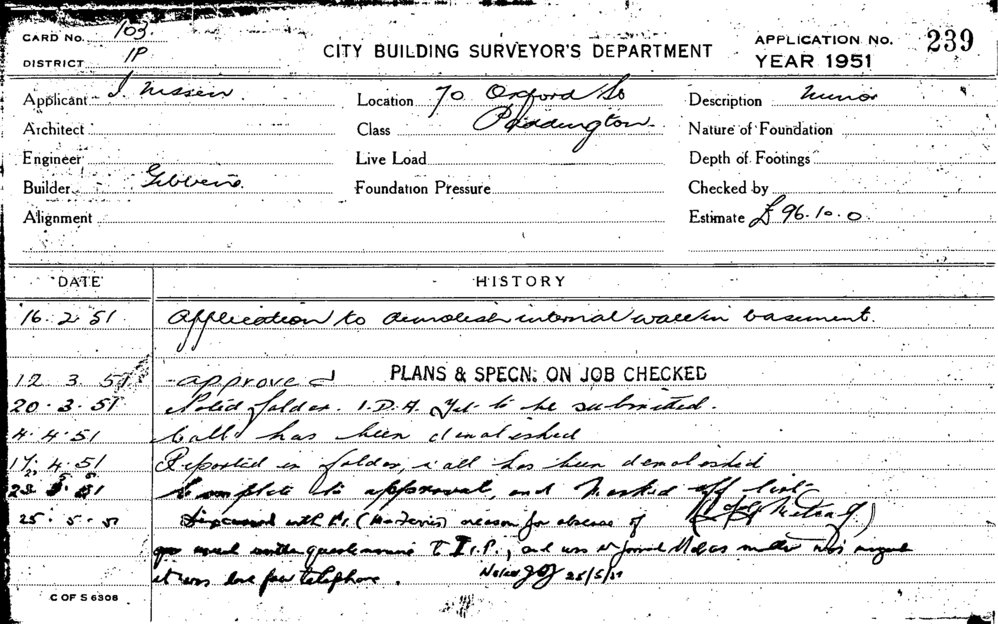 CARD No. 103.
DISTRICT 1P
CITY BUILDING SURVEYOR'S DEPARTMENT
APPLICATION No. 239
YEAR 1951
Applicant J. Location 70 Oxford St Description Minor
Architect Class Paddington. Nature of Foundation
Engineer Live Load Depth of Footings
Builder Foundation Pressure Checked by
Alignment Estimate £96.10.0
DATE HISTORY
16.2.51 Application to demolish internal wall in basement.
12.3.51 approved PLANS & SPECN. ON JOB CHECKED
20.3.51 Noted folder. I.D.A. Yet to be submitted.
4.4.51 Wall has been demolished
17.4.51 Reported in folder, wall has been demolished
23.5.51 Complete to approval, and marked off list
25.5.51 Discussed with reason for absence of
and was informed as matter was urgent
it was done per telephone. Noted 25/5/51
C OF S 6306